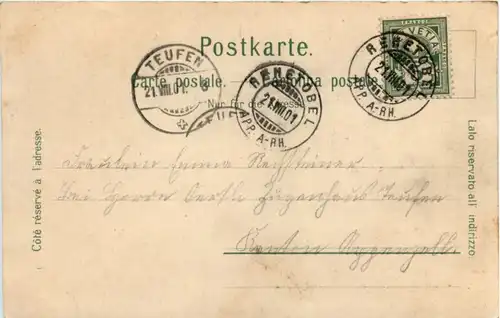 Postkarte.
Carte postale.
postale
Nur für die Adresse
TEUFEN
21.VIII.01.
REHETOBEL
21.VIII.01
APP. A-RH.
REHETOBEL
21.VIII.01
APP. A-RH.
FRANCO
Côté réservé à l'adresse.
Lato riservato all' indirizzo.
Fräulein Emma Rechsteiner
bei Herrn Oertle Zugenhaus Teufen
Kanton Appenzell.